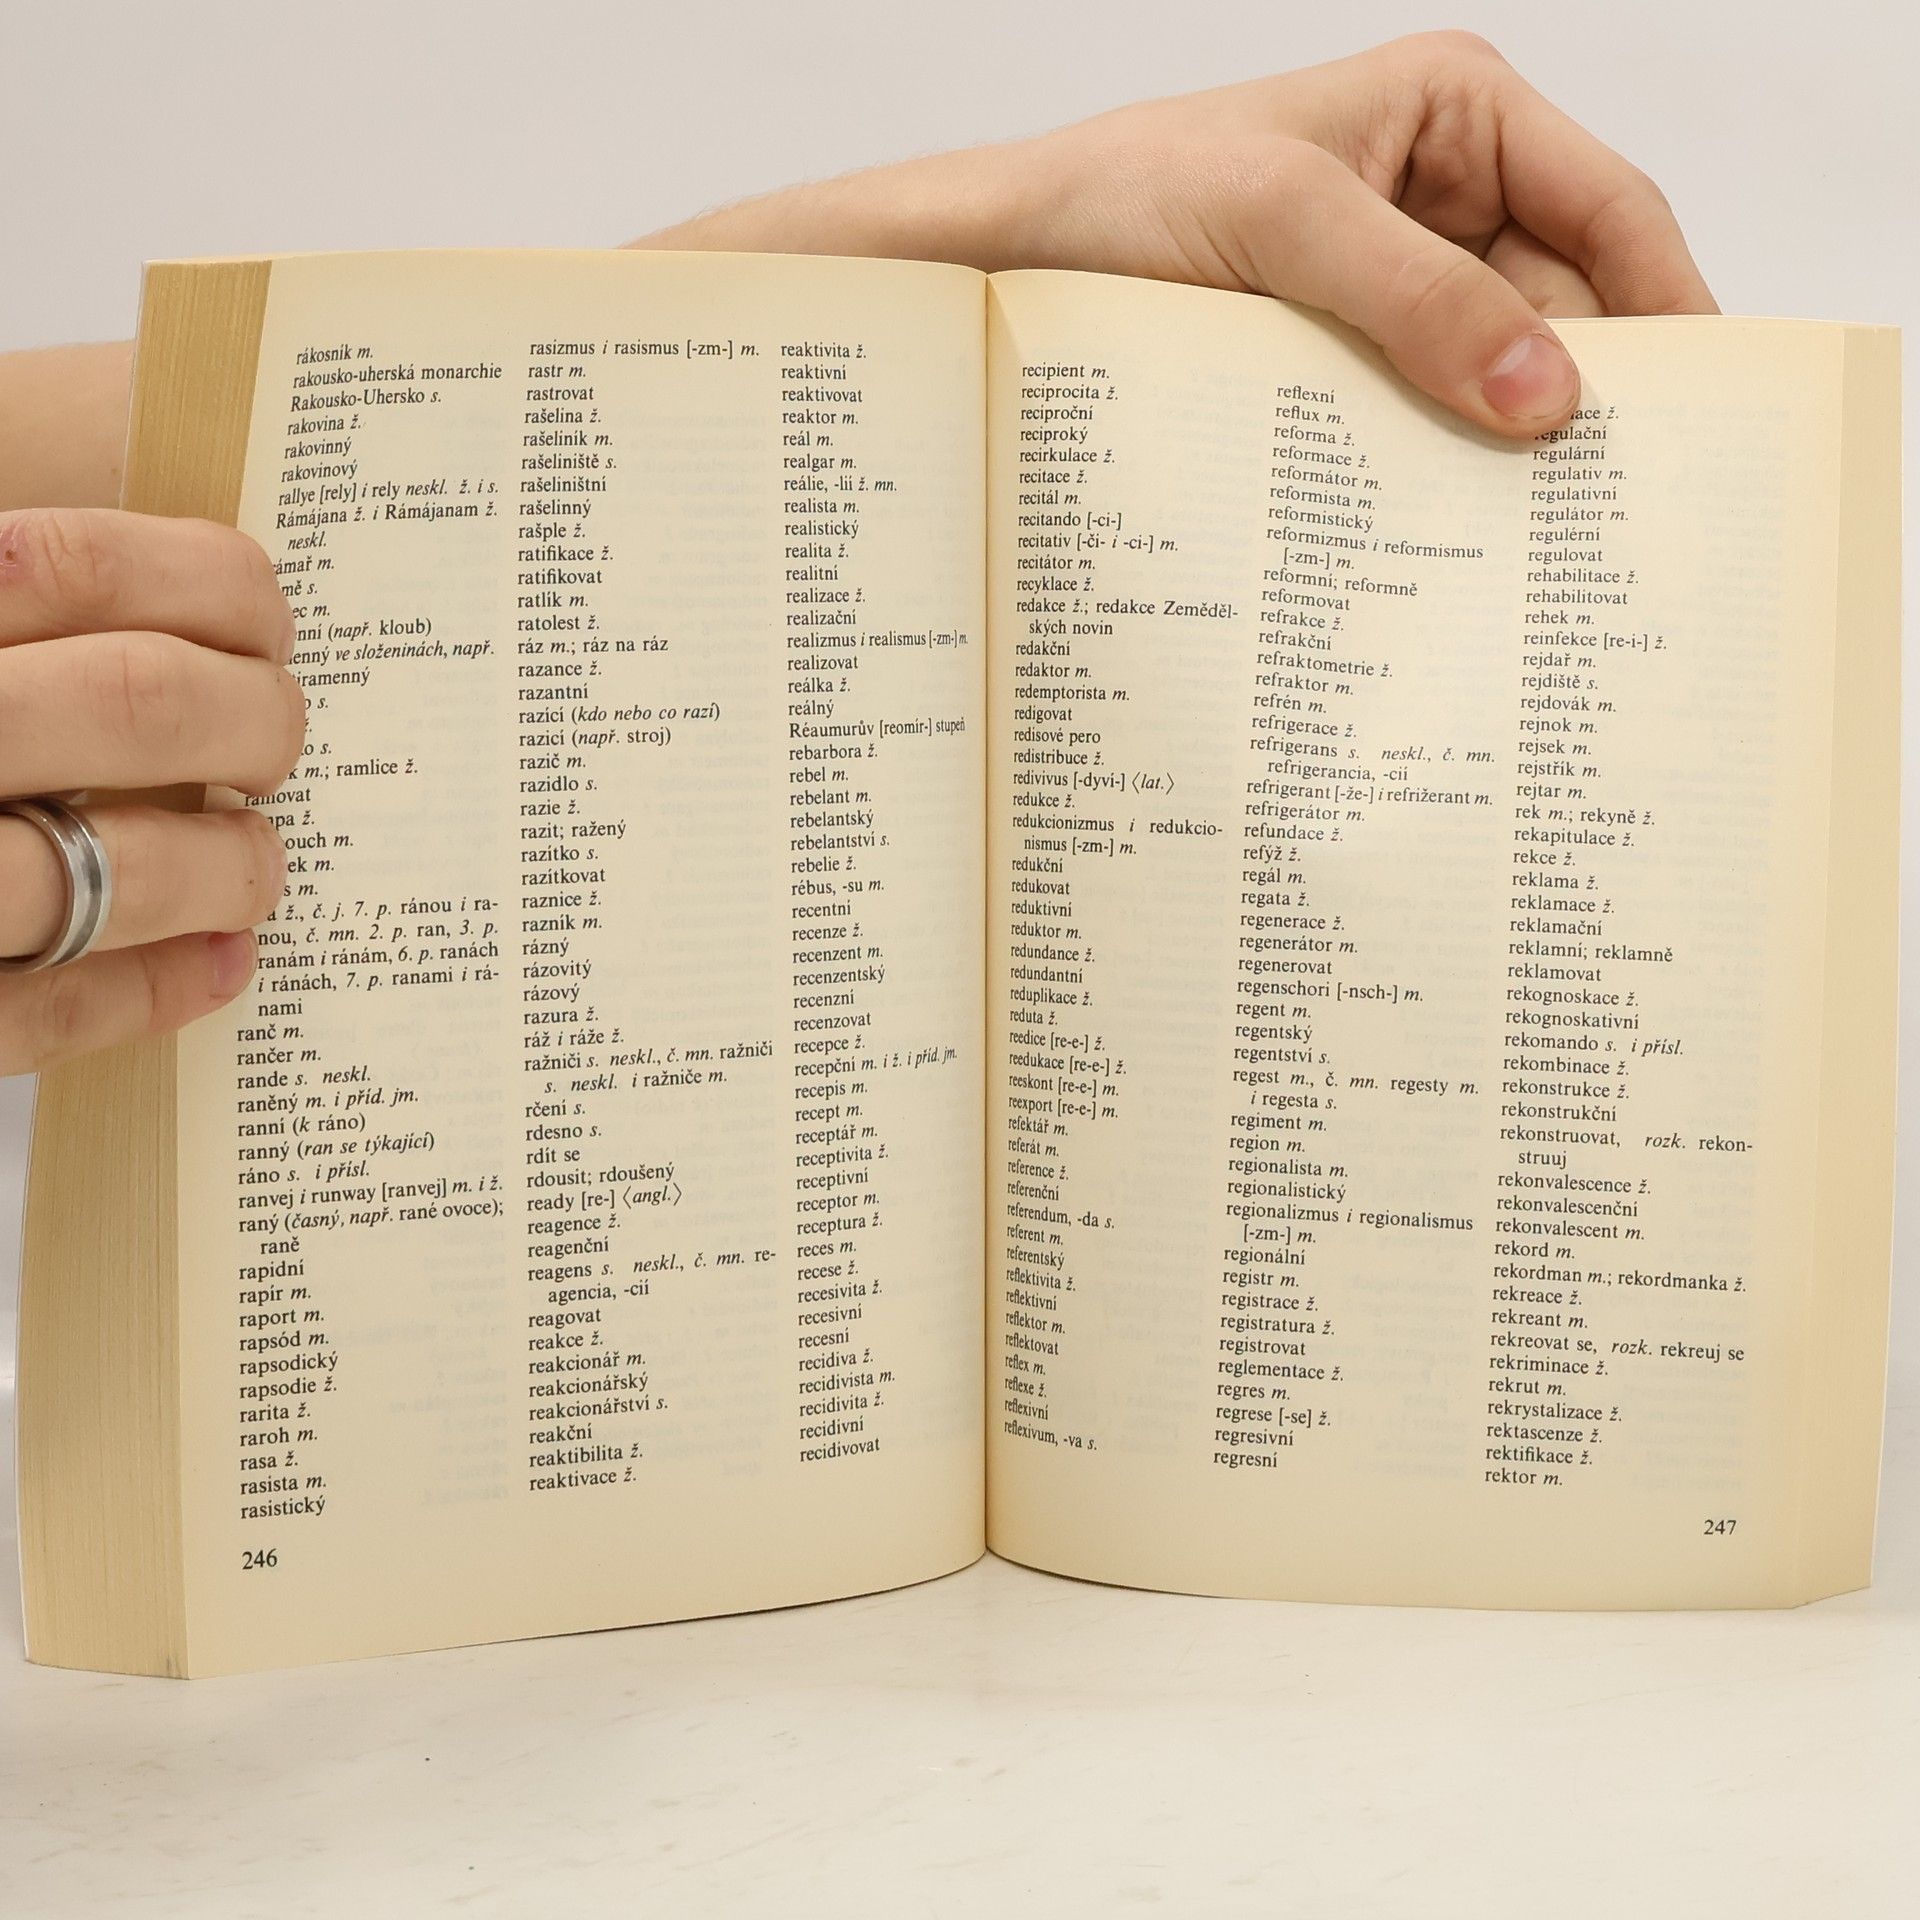 rákosník m.
rakousko-uherská monarchie
Rakousko-Uhersko s.
rakovina ž.
rakovinný
rakovinový
rallye [rely] i rely neskl. ž. i s.
Rámájana ž. i Rámájanam ž.
neskl.
m.
s.
m.
(např. kloub)
ve složeninách, např.
s.
ž.
s.
m.; ramlice ž.
ramovat
ž.
m.
m.
m.
ž., č. j. 7. p. ránou i ra-
nou, č. mn. 2. p. ran, 3. p.
ranám i ránám, 6. p. ranách
i ránách, 7. p. ranami i rá-
nami
ranč m.
rančer m.
rande s. neskl.
raněný m. i příd. jm.
ranní (k ráno)
ranný (ran se týkající)
ráno s. i přísl.
ranvej i runway [ranvej] m. i ž.
raný (časný, např. rané ovoce);
raně
rapidní
rapír m.
raport m.
rapsód m.
rapsodický
rapsodie ž.
rarita ž.
raroh m.
rasa ž.
rasista m.
rasistický
rasizmus i rasismus [-zm-] m.
rastr m.
rastrovat
rašelina ž.
rašeliník m.
rašeliniště s.
rašeliništní
rašelinný
rašple ž.
ratifikace ž.
ratifikovat
ratlík m.
ratolest ž.
ráz m.; ráz na ráz
razance ž.
razantní
razící (kdo nebo co razí)
razicí (např. stroj)
razič m.
razidlo s.
razie ž.
razit; ražený
razítko s.
razítkovat
raznice ž.
razník m.
rázný
rázovitý
rázový
razura ž.
ráž i ráže ž.
ražniči s. neskl., č. mn. ražniči
s. neskl. i ražniče m.
rčení s.
rdesno s.
rdít se
rdousit; rdoušený
ready [re-] ⟨angl.⟩
reagence ž.
reagenční
reagens s. neskl., č. mn. re-
agencia, -cií
reagovat
reakce ž.
reakcionář m.
reakcionářský
reakcionářství s.
reakční
reaktibilita ž.
reaktivace ž.
reaktivita ž.
reaktivní
reaktivovat
reaktor m.
reál m.
realgar m.
reálie, -lií ž. mn.
realista m.
realistický
realita ž.
realitní
realizace ž.
realizační
realizmus i realismus [-zm-] m.
realizovat
reálka ž.
reálný
Réaumurův [reomír-] stupeň
rebarbora ž.
rebel m.
rebelant m.
rebelantský
rebelantství s.
rebelie ž.
rébus, -su m.
recentní
recenze ž.
recenzent m.
recenzentský
recenzní
recenzovat
recepce ž.
recepční m. i ž. i příd. jm.
recepis m.
recept m.
receptář m.
receptivita ž.
receptivní
receptor m.
receptura ž.
reces m.
recese ž.
recesivita ž.
recesivní
recesní
recidiva ž.
recidivista m.
recidivita ž.
recidivní
recidivovat
246
recipient m.
reciprocita ž.
reciproční
reciproký
recirkulace ž.
recitace ž.
recitál m.
recitando [-ci-]
recitativ [-či- i -ci-] m.
recitátor m.
recyklace ž.
redakce ž.; redakce Zeměděl-
ských novin
redakční
redaktor m.
redemptorista m.
redigovat
redisové pero
redistribuce ž.
redivivus [-dyví-] ⟨lat.⟩
redukce ž.
redukcionizmus i redukcio-
nismus [-zm-] m.
redukční
redukovat
reduktivní
reduktor m.
redundance ž.
redundantní
reduplikace ž.
reduta ž.
reedice [re-e-] ž.
reedukace [re-e-] ž.
reeskont [re-e-] m.
reexport [re-e-] m.
refektář m.
referát m.
reference ž.
referenční
referendum, -da s.
referent m.
referentský
reflektivita ž.
reflektivní
reflektor m.
reflektovat
reflex m.
reflexe ž.
reflexivní
reflexivum, -va s.
reflexní
reflux m.
reforma ž.
reformace ž.
reformátor m.
reformista m.
reformistický
reformizmus i reformismus
[-zm-] m.
reformní; reformně
reformovat
refrakce ž.
refrakční
refraktometrie ž.
refraktor m.
refrén m.
refrigerace ž.
refrigerans s. neskl., č. mn.
refrigerancia, -cií
refrigerant [-že-] i refrižerant m.
refrigerátor m.
refundace ž.
refýž ž.
regál m.
regata ž.
regenerace ž.
regenerátor m.
regenerovat
regenschori [-nsch-] m.
regent m.
regentský
regentství s.
regest m., č. mn. regesty m.
i regesta s.
regiment m.
region m.
regionalista m.
regionalistický
regionalizmus i regionalismus
[-zm-] m.
regionální
registr m.
registrace ž.
registratura ž.
registrovat
reglementace ž.
regres m.
regrese [-se] ž.
regresivní
regresní
ž.
regulační
regulární
regulativ m.
regulativní
regulátor m.
regulérní
regulovat
rehabilitace ž.
rehabilitovat
rehek m.
reinfekce [re-i-] ž.
rejdař m.
rejdiště s.
rejdovák m.
rejnok m.
rejsek m.
rejstřík m.
rejtar m.
rek m.; rekyně ž.
rekapitulace ž.
rekce ž.
reklama ž.
reklamace ž.
reklamační
reklamní; reklamně
reklamovat
rekognoskace ž.
rekognoskativní
rekomando s. i přísl.
rekombinace ž.
rekonstrukce ž.
rekonstrukční
rekonstruovat, rozk. rekon-
struuj
rekonvalescence ž.
rekonvalescenční
rekonvalescent m.
rekord m.
rekordman m.; rekordmanka ž.
rekreace ž.
rekreant m.
rekreovat se, rozk. rekreuj se
rekriminace ž.
rekrut m.
rekrystalizace ž.
rektascenze ž.
rektifikace ž.
rektor m.
247